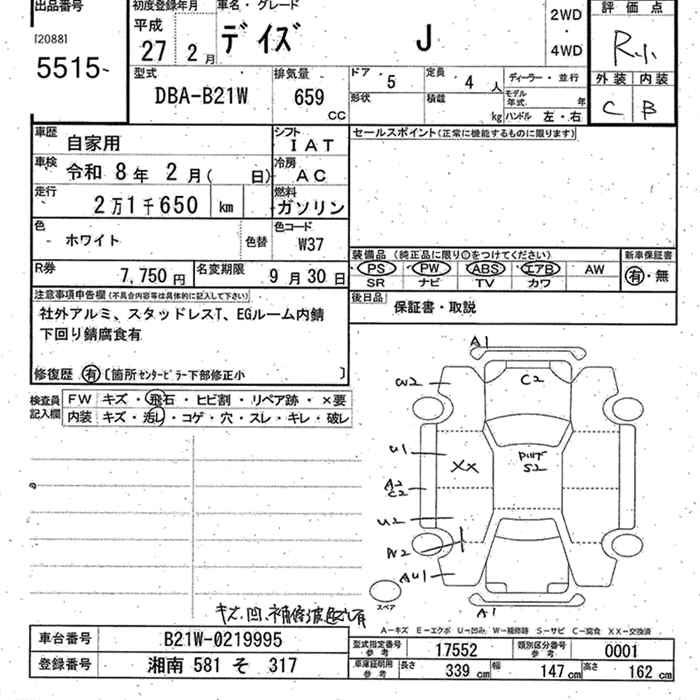 出品番号 初度登録年月 車名・グレード 評価点
[2088] 平成 2WD
5515 27 2月 デイズ J ・4WD R小
外装 内装
C B
型式 排気量 ドア・ 定員 ディーラー・並行
DBA-B21W 659 cc 5 4人 モデル年式 年
形状 積載 kg ハンドル 左・右
車歴 自家用 シフト IAT セールスポイント(正常に機能するものに限ります)
車検 令和 8年 2月( 日) 冷房 AC
走行 2万1千650 km 燃料 ガソリン
色 ホワイト 色替 色コード W37
装備品(純正品に限り○をつけてください) 新車保証書
PS PW ABS エアB AW 有・無
SR ナビ TV カワ
R券 7,750円 名変期限 9月30日
後日品 保証書・取説
注意事項申告欄(不具合内容等は具体的に記入して下さい)
社外アルミ、スタッドレスT、EGルーム内錆
下回り錆腐食有
修復歴 有 〔箇所センターピラー下部修正小 〕
検査員記入欄 FW キズ・飛石・ヒビ割・リペア跡・×要
内装 キズ・汚レ・コゲ・穴・スレ・キレ・破レ
A1
W2 C2
U1 XX S2
A2
C2
U2
W2
AU1
A1
スペア
A-キズ E-エクボ U-凹み W-補修跡 S-サビ C-腐食 XX-交換済
車台番号 B21W-0219995
登録番号 湘南 581 そ 317
型式指定番号 参考 17552 類別区分番号 参考 0001
車庫証明用 参考 長さ 339 cm 幅 147 cm 高さ 162 cm